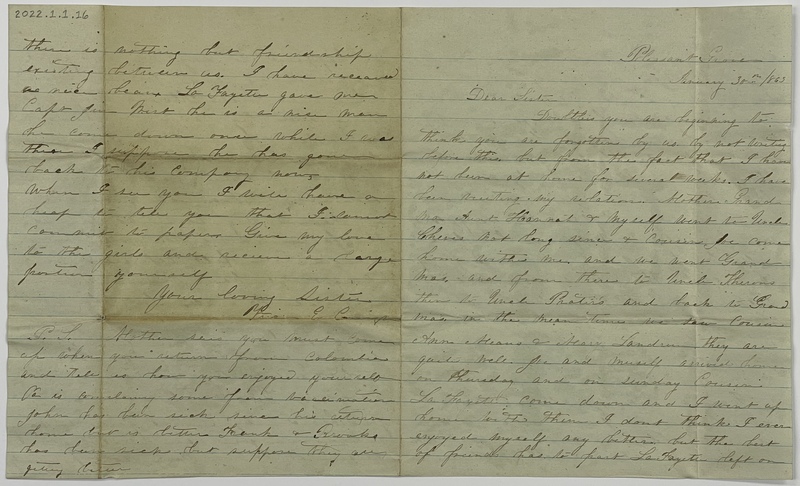 2022.1.1.16
Pleasant Grove
January 30th /863
Dear Sister
Doubtless you are begining to
think you are forgotten by us by not writing
before this but from the fact that I have
not been at home for several weeks. I have
been visiting my relation. Mother Grand
Ma Aunt Hannah & Myself went to Uncle
not long since & Cousin Joe come
home with me, and we went Grand
Mas, and from there to Uncle
then to Uncle and back to Grand
mas in the mean time we saw Cousin
Ann Means & Mary they are
quit well. Joe and myself arrived home
on Thursday and on sunday Cousin
La Fayette come down and I went up
home with them I dont think I ever
enjoyed myself any better but the best
of friends has to part La Fayette left on
there is nothing but friendship
existing between us. I have received
a nice beaux La Fayette gave me
Capt Jim he is a nice man
he come down once while I was
there I suppose he has gone
back to his company now,
When I see you I will have a
heap to tell you that I cannot
commit to paper. Give my love
to the girls and receive a large
portion yourself
Your loving Sister
E
P. S. Mother says you must come
up when you return from columbia
and tell us how you enjoyed yourself
Pa is some of our
John has been sick since his return
home but is better Frank & Brooks
has been sick but suppose they are
geting better